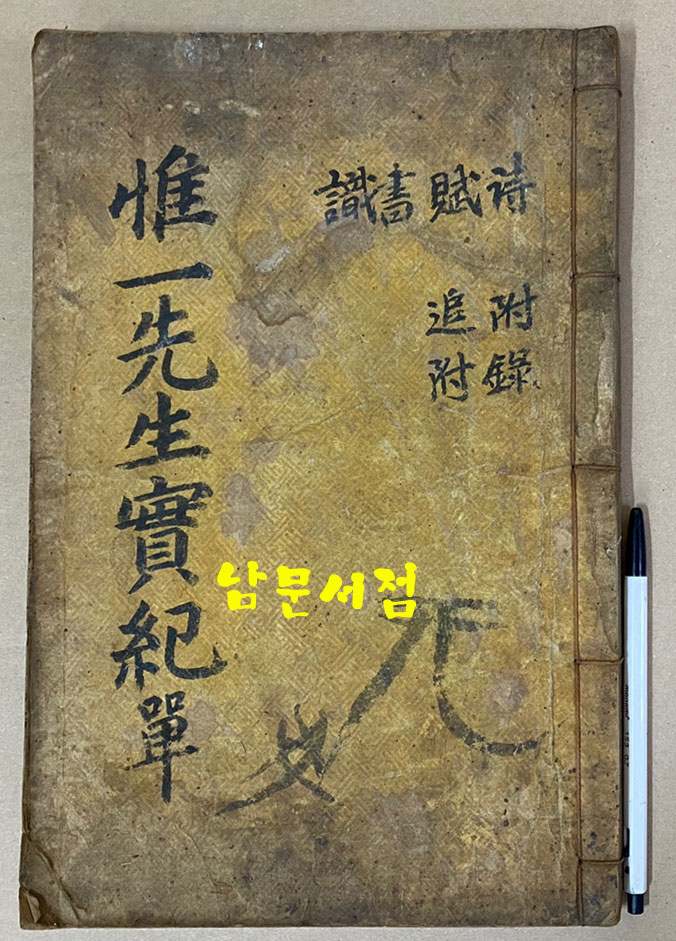 詩賦書識
附錄
追附
惟一先生實紀單
남문서점